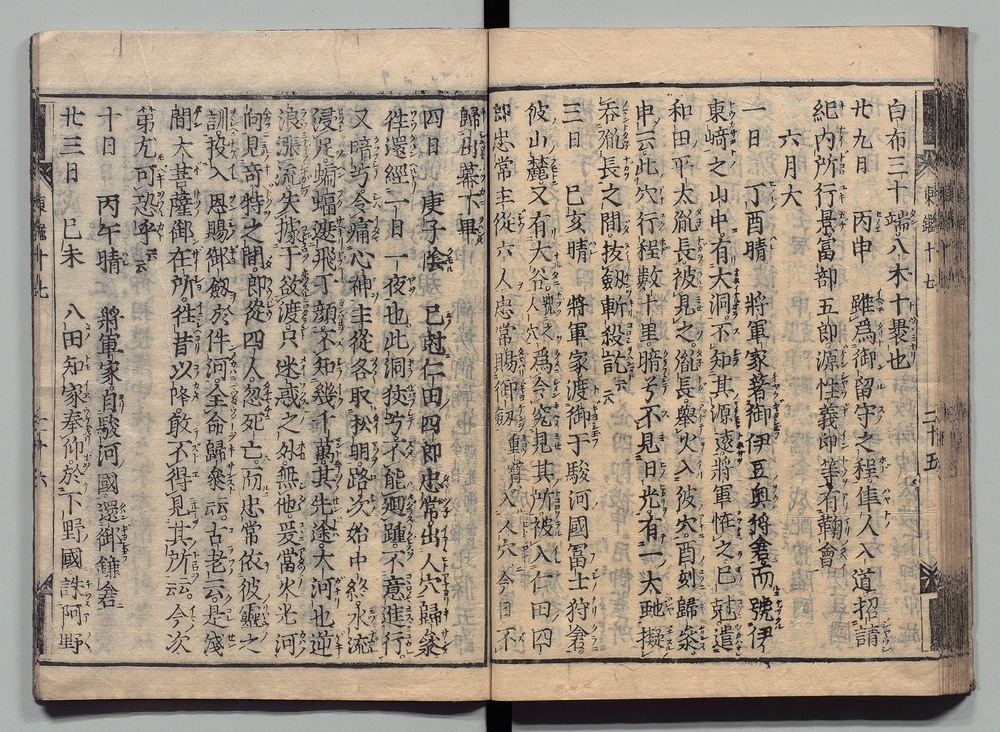 白布三十端八木十褁也
廿九日　丙申　雖爲御留守之程隼人入道招請
紀内所行景冨部五郎源性義印等有鞠會
六月大
一日　丁酉晴　將軍家著御伊豆奥狩倉而號伊
東﨑之山中有大洞不知其源遠將軍恠之巳尅遣
和田平太胤長被見之胤長舉火入彼穴酉刻歸參
申云此穴行程數十里暗兮不見日光有一大虵擬
吞胤長之間抜劔斬殺訖云云
三日　己亥晴　將軍家渡御于駿河國冨士狩倉
彼山麓又有大谷号之人穴爲令究見其所被入仁田四
郎忠常主從六人忠常賜御劔重寳入人穴今日不
歸出幕下畢
四日　庚子陰　巳尅仁田四郎忠常出人穴歸參
徃還經一日一夜也此洞狹兮不能廻踵不意進行
又暗兮令痛心神主從各取松明路次始中終水流
浸足蝙蝠遮飛于顔不知幾千萬其先途大河也逆
浪漲流失據于欲渡只迷惑之外無他爰當火光河
向見竒特之間郎從四人忽死亡而忠常依彼靈之
訓投入恩賜御劔於件河全命歸參云云古老云是淺
間大菩薩御在所徃昔以降敢不得見其所云云今次
第尤可恐乎云云
十日　丙午晴　將軍家自駿河國還御鎌倉
廿三日　己未　八田知家奉仰於下野國誅阿野
東鑑十七
二十五
東鑑十七